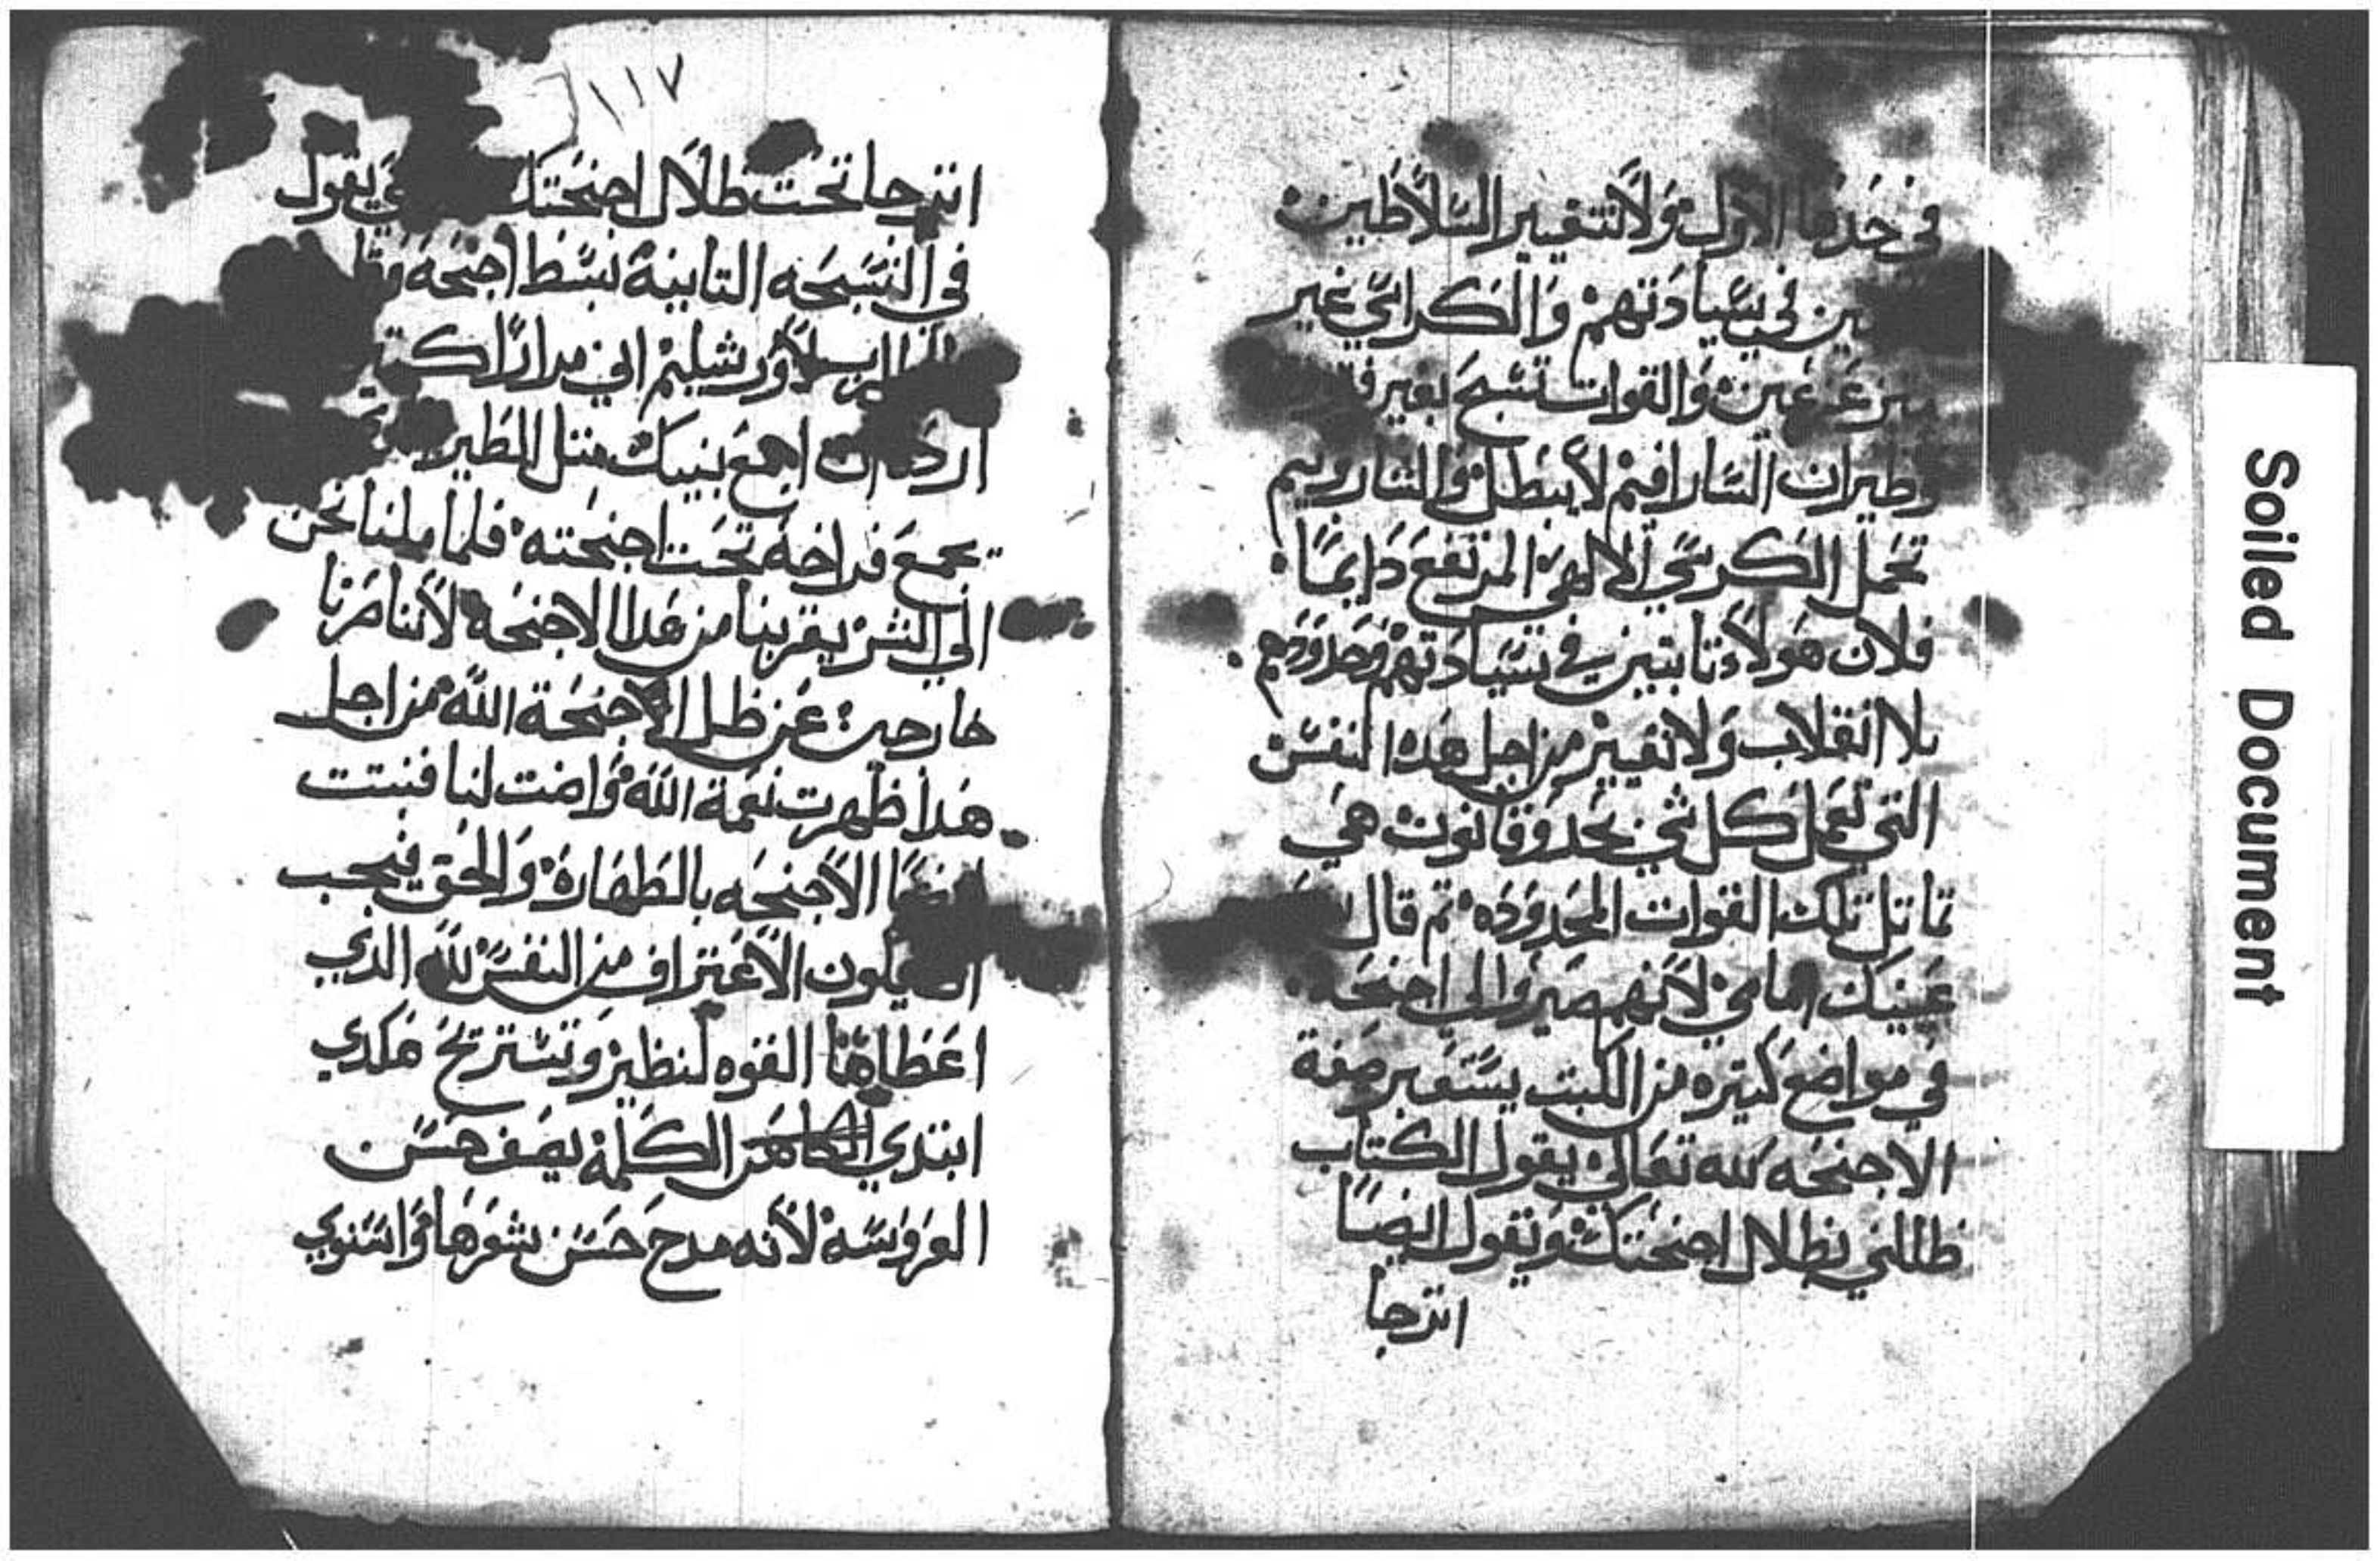 في حدها الاول ولا تتغير السلاطين
في سيادتهم والكراسي غير
والقوات تسبح بغير
وطيران السارافيم لا يبطل والشاروبيم
تحمل الكرسي الالهي المرتفع دايمًا
فلان هولاء تابتين في سيادتهم وحدودهم
بلا انقلاب ولا تغيير من اجل هده النفس
التي تعمل كل شي بحد وقانون هي
تماتل تلك القوات المحدوده تم قال
عينيك امامي لانهم صيروا لي اجنحه
في مواضع كتيره من الكتب يستعير صفة
الاجنحه لله تعالي يقول الكتاب
ظللني بظلال اجنحتك وتقول ايضًا
اترجا
١١٧
اترجا تحت ظلال اجنحتك يقول
في التسبحه التانية بسط اجنحة
الرب لاورشليم اني مرارًا
اردت ان اجمع بنيك متل الطير
يجمع فراخه تحت اجنحته فلما ملنا نحن
الي الشر بقربنا من هدا الاجنحه لاننا صرنا
خارجين عن ظل الاجنحة الله من اجل
هدا ظهرت نعمة الله واضت لنا فنبتت
ايضًا الاجنحه بالطهارة والحق فيجب
يكون الاعتراف من النفس لله الدي
اعطاها القوه لنطير وتستريح هكدي
ابتدي الكلمة يصف حسن
العروسه لانه مدح حسن شعرها واستوي
Soiled Document